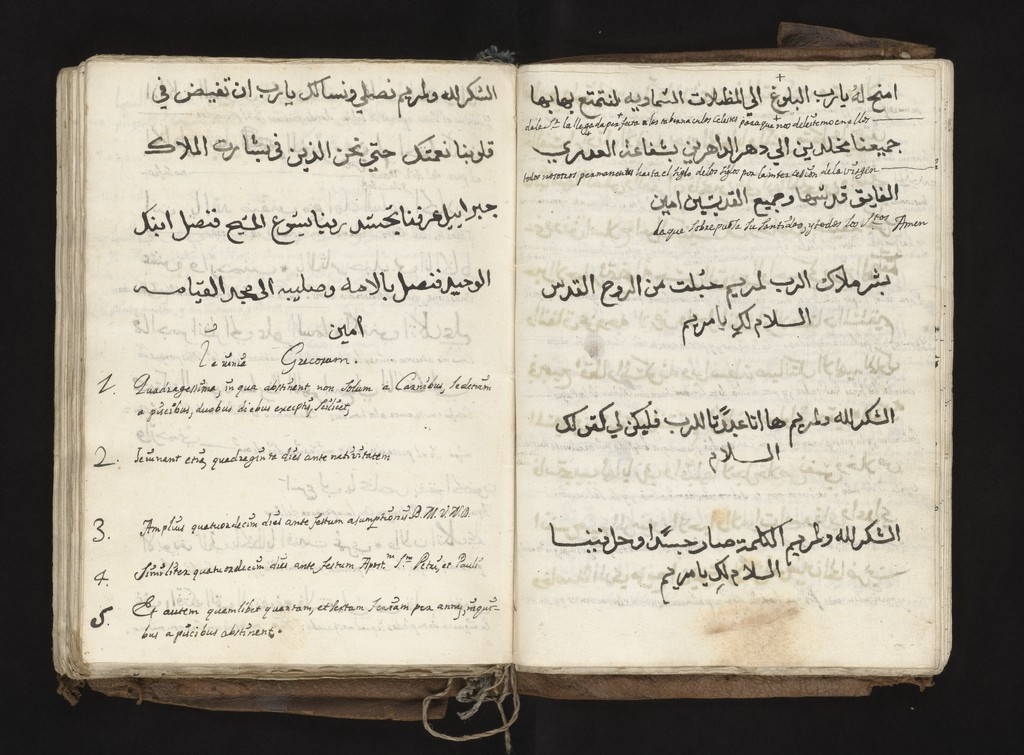 امنح له يارب البلوغ الي المظلات السماويه لنتمتع بهابها
dele Sr. la llegada perfecta a los tabernaculos celestes paraque nos deleitemo en ellos
جميعنا مخلدين الي دهر الداهرين بشفاعة العدري
todos nosotros permanentes hasta el siglo de los siglos por la intercesion de la virgen
الفايق قدسها وجميع القديسين امين
la que sobrepuja su santidad, y todos los Stos Amen
بشر ملاك الرب لمريم حبلت من الروح القدس
السلام لكِ يا مريم
الشكر لله ولمريم ها انا عبدة للرب فليكن لي كقولك
السلام
الشكر لله ولمريم الكلمة صار جسدًا وحل فينا
السلام لكِ يا مريم
الشكر لله ولمريم نصلي ونسالك يارب ان تفيض في
قلوبنا نعمتك حتي نحن الذين في بشارت الملاك
جبراييل عرفنا بجسد ربنا يسوع المسيح فنصل ابنك
الوحيد فنصل بالامه وصليبه الى مجد القيامه
امين
Ieiunia Grecorum.
1. Quadragessima, in qua abstinent non solum a Carnibus, sed etiam
a piscibus, duobus diebus exceptis, scilicet,
2. Ieiunant etia quadraginta dies ante nativitatem
3. Amplius quatuordecim dies ante festum asumptionis B. M. V. N. D.
4. Similiter quatuordecim dies ante festum Apost.m S.m Petri, et Pauli
5. Et autem quamlibet quartam, et sextam feriam per annu, in qui-
bus a piscibus abstinent.